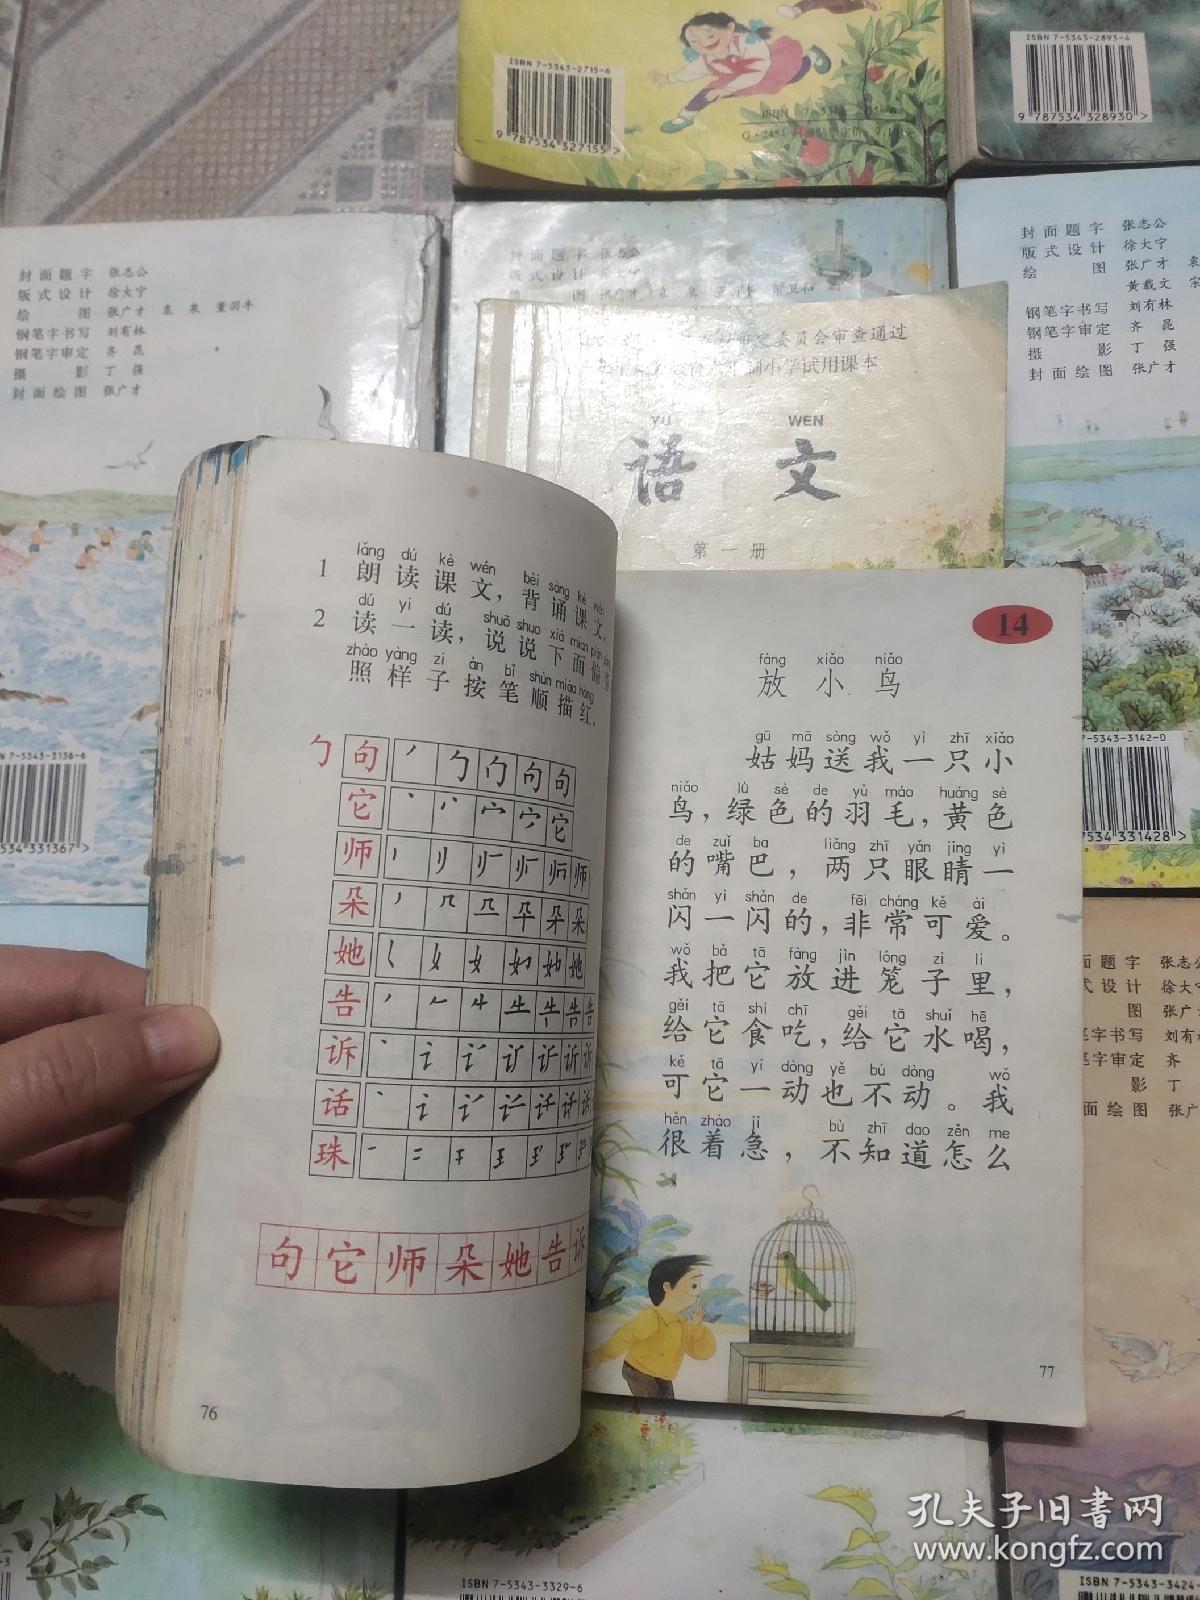 ISBN 7-5343-2715-6
9 787534 327155>
ISBN 7-5343-2893-4
9 787534 328930>
封面题字 张志公
版式设计 徐大宇
绘 图 张广才 袁泉 董羽丰
钢笔字书写 刘有林
钢笔字审定 齐昆
摄 影 丁强
封面绘图 张广才
封面题字 张志公
封面题字 张志公
版式设计 徐大宇
绘 图 张广才 袁
黄载文
钢笔字书写 刘有林
钢笔字审定 齐昆
摄 影 丁强
封面绘图 张广才
委员会审查通过
制小学试用课本
YU WEN
语文
第一册
lǎng dú kè wén bèi sòng kè wén
1 朗读课文,背诵课文。
dú yi dú shuō shuo xià miàn piān páng
2 读一读,说说下面偏旁
zhào yàng zi àn bǐ shùn miáo hóng
照样子按笔顺描红。
勹 句
它
师
朵
她
告
诉
话
珠
句它师朵她告诉
76
14
fàng xiǎo niǎo
放小鸟
gū mā sòng wǒ yì zhī xiǎo
姑妈送我一只小
niǎo lǜ sè de yǔ máo huáng sè
鸟,绿色的羽毛,黄色
de zuǐ ba liǎng zhī yǎn jing yì
的嘴巴,两只眼睛一
shǎn yì shǎn de fēi cháng kě ài
闪一闪的,非常可爱。
wǒ bǎ tā fàng jìn lóng zi li
我把它放进笼子里,
gěi tā shí chī gěi tā shuǐ hē
给它食吃,给它水喝,
kě tā yí dòng yě bú dòng wǒ
可它一动也不动。我
hěn zháo jí bù zhī dao zěn me
很着急,不知道怎么
77
7-5343-3136-6
534 331367>
7-5343-3142-0
534 331428>
面题字 张志公
式设计 徐大宇
图 张广才
笔字书写 刘有林
笔字审定 齐
影 丁
面绘图 张广才
ISBN 7-5343-3329-6
ISBN 7-5343-3424-
孔夫子旧书网
www.kongfz.com